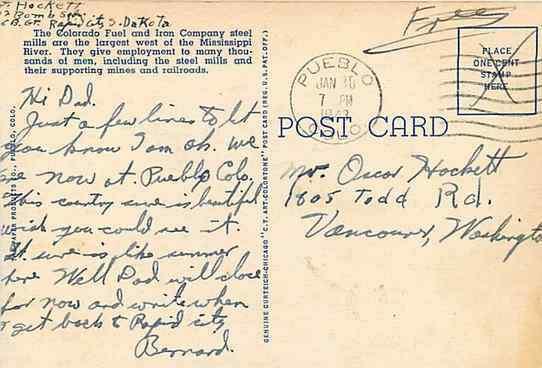 Hockett
Bomb Sq.
C.B. Gr. Rapid City S. Dakota
The Colorado Fuel and Iron Company steel
mills are the largest west of the Mississippi
River. They give employment to many thou-
sands of men, including the steel mills and
their supporting mines and railroads.
Hi Dad.
Just a few lines to let
you know I am ok. We
now at Pueblo Colo.
this country sure is beautiful
wish you could see it.
It sure is like summer
here Well Dad will close
for now and write when
get back to Rapid city
Bernard.
PUEBLO, COLO.
GENUINE CURTEICH-CHICAGO "C.T. ART-COLORTONE" POST CARD (REG. U.S. PAT. OFF.)
Free
PLACE
ONE CENT
STAMP
HERE
PUEBLO
JAN 30
7 PM
1943
COLO
POST CARD
Mr. Oscar Hockett
1805 Todd Rd.
Vancouver, Washington